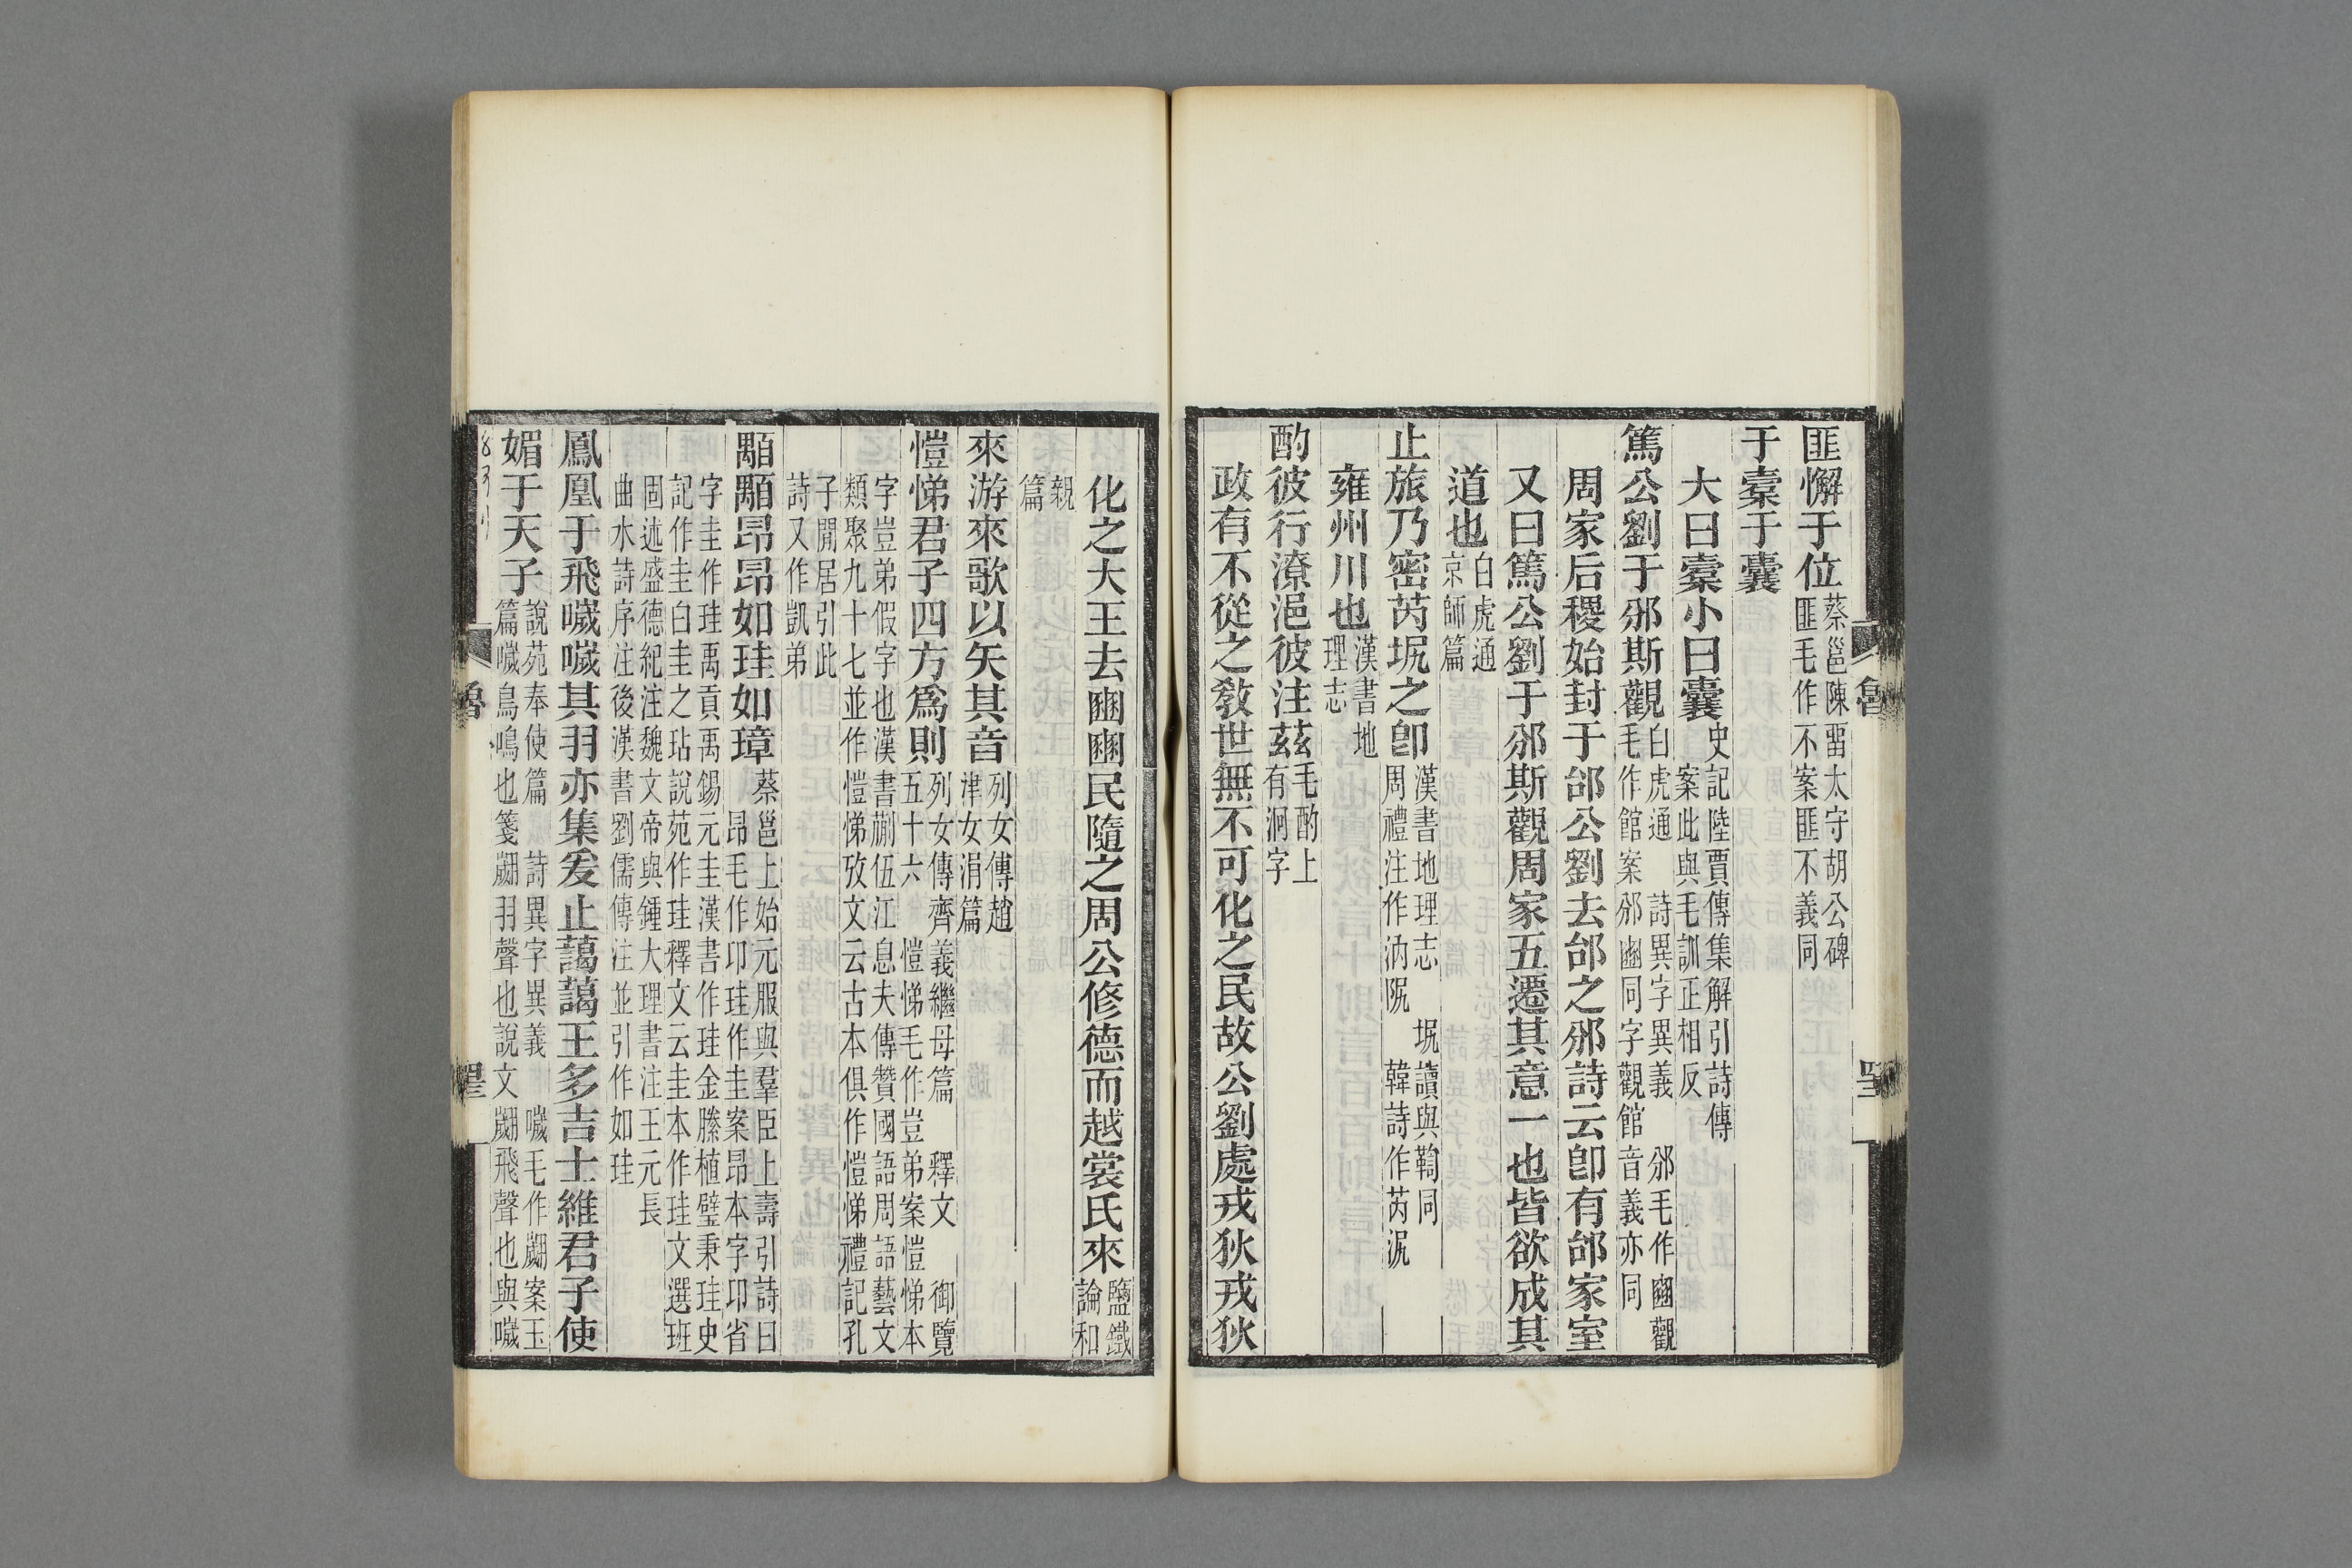 匪懈于位蔡邕陳畱太守胡公碑
匪毛作不案匪不義同
于橐于囊
大曰橐小曰囊史記陸賈傳集解引詩傳
案此與毛訓正相反
篤公劉于邠斯觀白虎通　詩異字異義　邠毛作豳觀
毛作館案邠豳同字觀館音義亦同
周家后稷始封于邰公劉去邰之邠詩云卽有邰家室
又曰篤公劉于邠斯觀周家五遷其意一也皆欲成其
道也白虎通
京師篇
止旅乃密芮坭之卽漢書地理志　坭讀與鞫同
周禮注作汭阸　韓詩作芮泥
雍州川也漢書地
理志
酌彼行潦浥彼注茲毛酌上
有泂字
政有不從之敎世無不可化之民故公劉處戎狄戎狄
化之大王去豳豳民隨之周公修德而越裳氏來鹽鐵
論和
親
篇
來游來歌以矢其音列女傳趙
津女涓篇
愷悌君子四方爲則列女傳齊義繼母篇　釋文　御覽
五十六　愷悌毛作豈弟案愷悌本
字豈弟假字也漢書蒯伍江息夫傳贊國語周語藝文
類聚九十七並作愷悌攷文云古本俱作愷悌禮記孔
子閒居引此
詩又作凱弟
顒顒昂昂如珪如璋蔡邕上始元服與羣臣上壽引詩曰
昂毛作卬珪作圭案昂本字卬省
字圭作珪禹貢禹錫元圭漢書作珪金縢植璧秉珪史
記作圭白圭之玷說苑作珪釋文云圭本作珪文選班
固述盛德紀注魏文帝與鍾大理書注王元長
曲水詩序注後漢書劉儒傳注並引作如珪
鳳凰于飛噦噦其羽亦集爰止藹藹王多吉士維君子使
媚于天子說苑奉使篇　詩異字異義　噦毛作翽案玉
篇噦鳥鳴也箋翽羽聲也說文翽飛聲也與噦
魯
魯